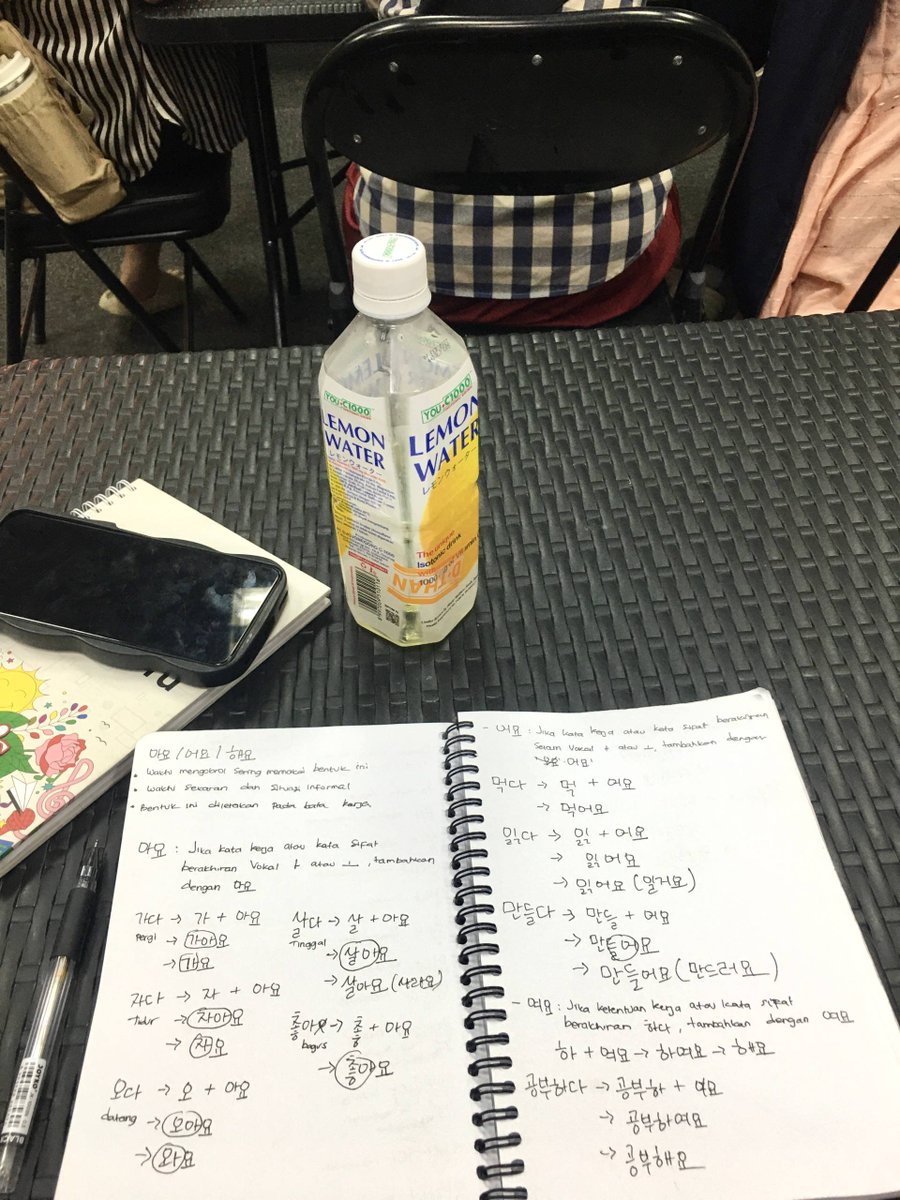 YOU-C1000
LEMON
WATER
レモンウォーター
YOU-C1000
LEMON
WATER
レモンウォーター
The unique
Isotonic drink
1000 mg of vitamin
아요 / 어요 / 해요
• Waktu mengobrol sering memakai bentuk ini
• Waktu sekarang dan situasi informal
• Bentuk ini diletakan pada kata kerja
아요 : Jika kata kerja atau kata sifat
berakhiran Vokal ㅏ atau ㅗ, tambahkan
dengan 아요
가다 → 가 + 아요
pergi → 가아요
→ 가요
자다 → 자 + 아요
tidur → 자아요
→ 자요
오다 → 오 + 아요
datang → 오아요
→ 와요
살다 → 살 + 아요
tinggal → 살아요
→ 살아요 (사라요)
bagus
→ 좋아요
- 어요 : Jika kata kerja atau kata sifat berakhiran
Selain Vokal ㅏ atau ㅗ, tambahkan dengan
어요'
먹다 → 먹 + 어요
→ 먹어요
읽다 → 읽 + 어요
→ 읽어요
→ 읽어요 (일거요)
만들다 → 만들 + 어요
→ 만들어요
→ 만들어요 (만드러요)
- 여요 : Jika ketentuan kerja atau kata sifat
berakhiran 하다, tambahkan dengan 여요
하 + 여요 → 하여요 → 해요
공부하다 → 공부하 + 여요
→ 공부하여요
→ 공부해요
JOYKO
BLACK